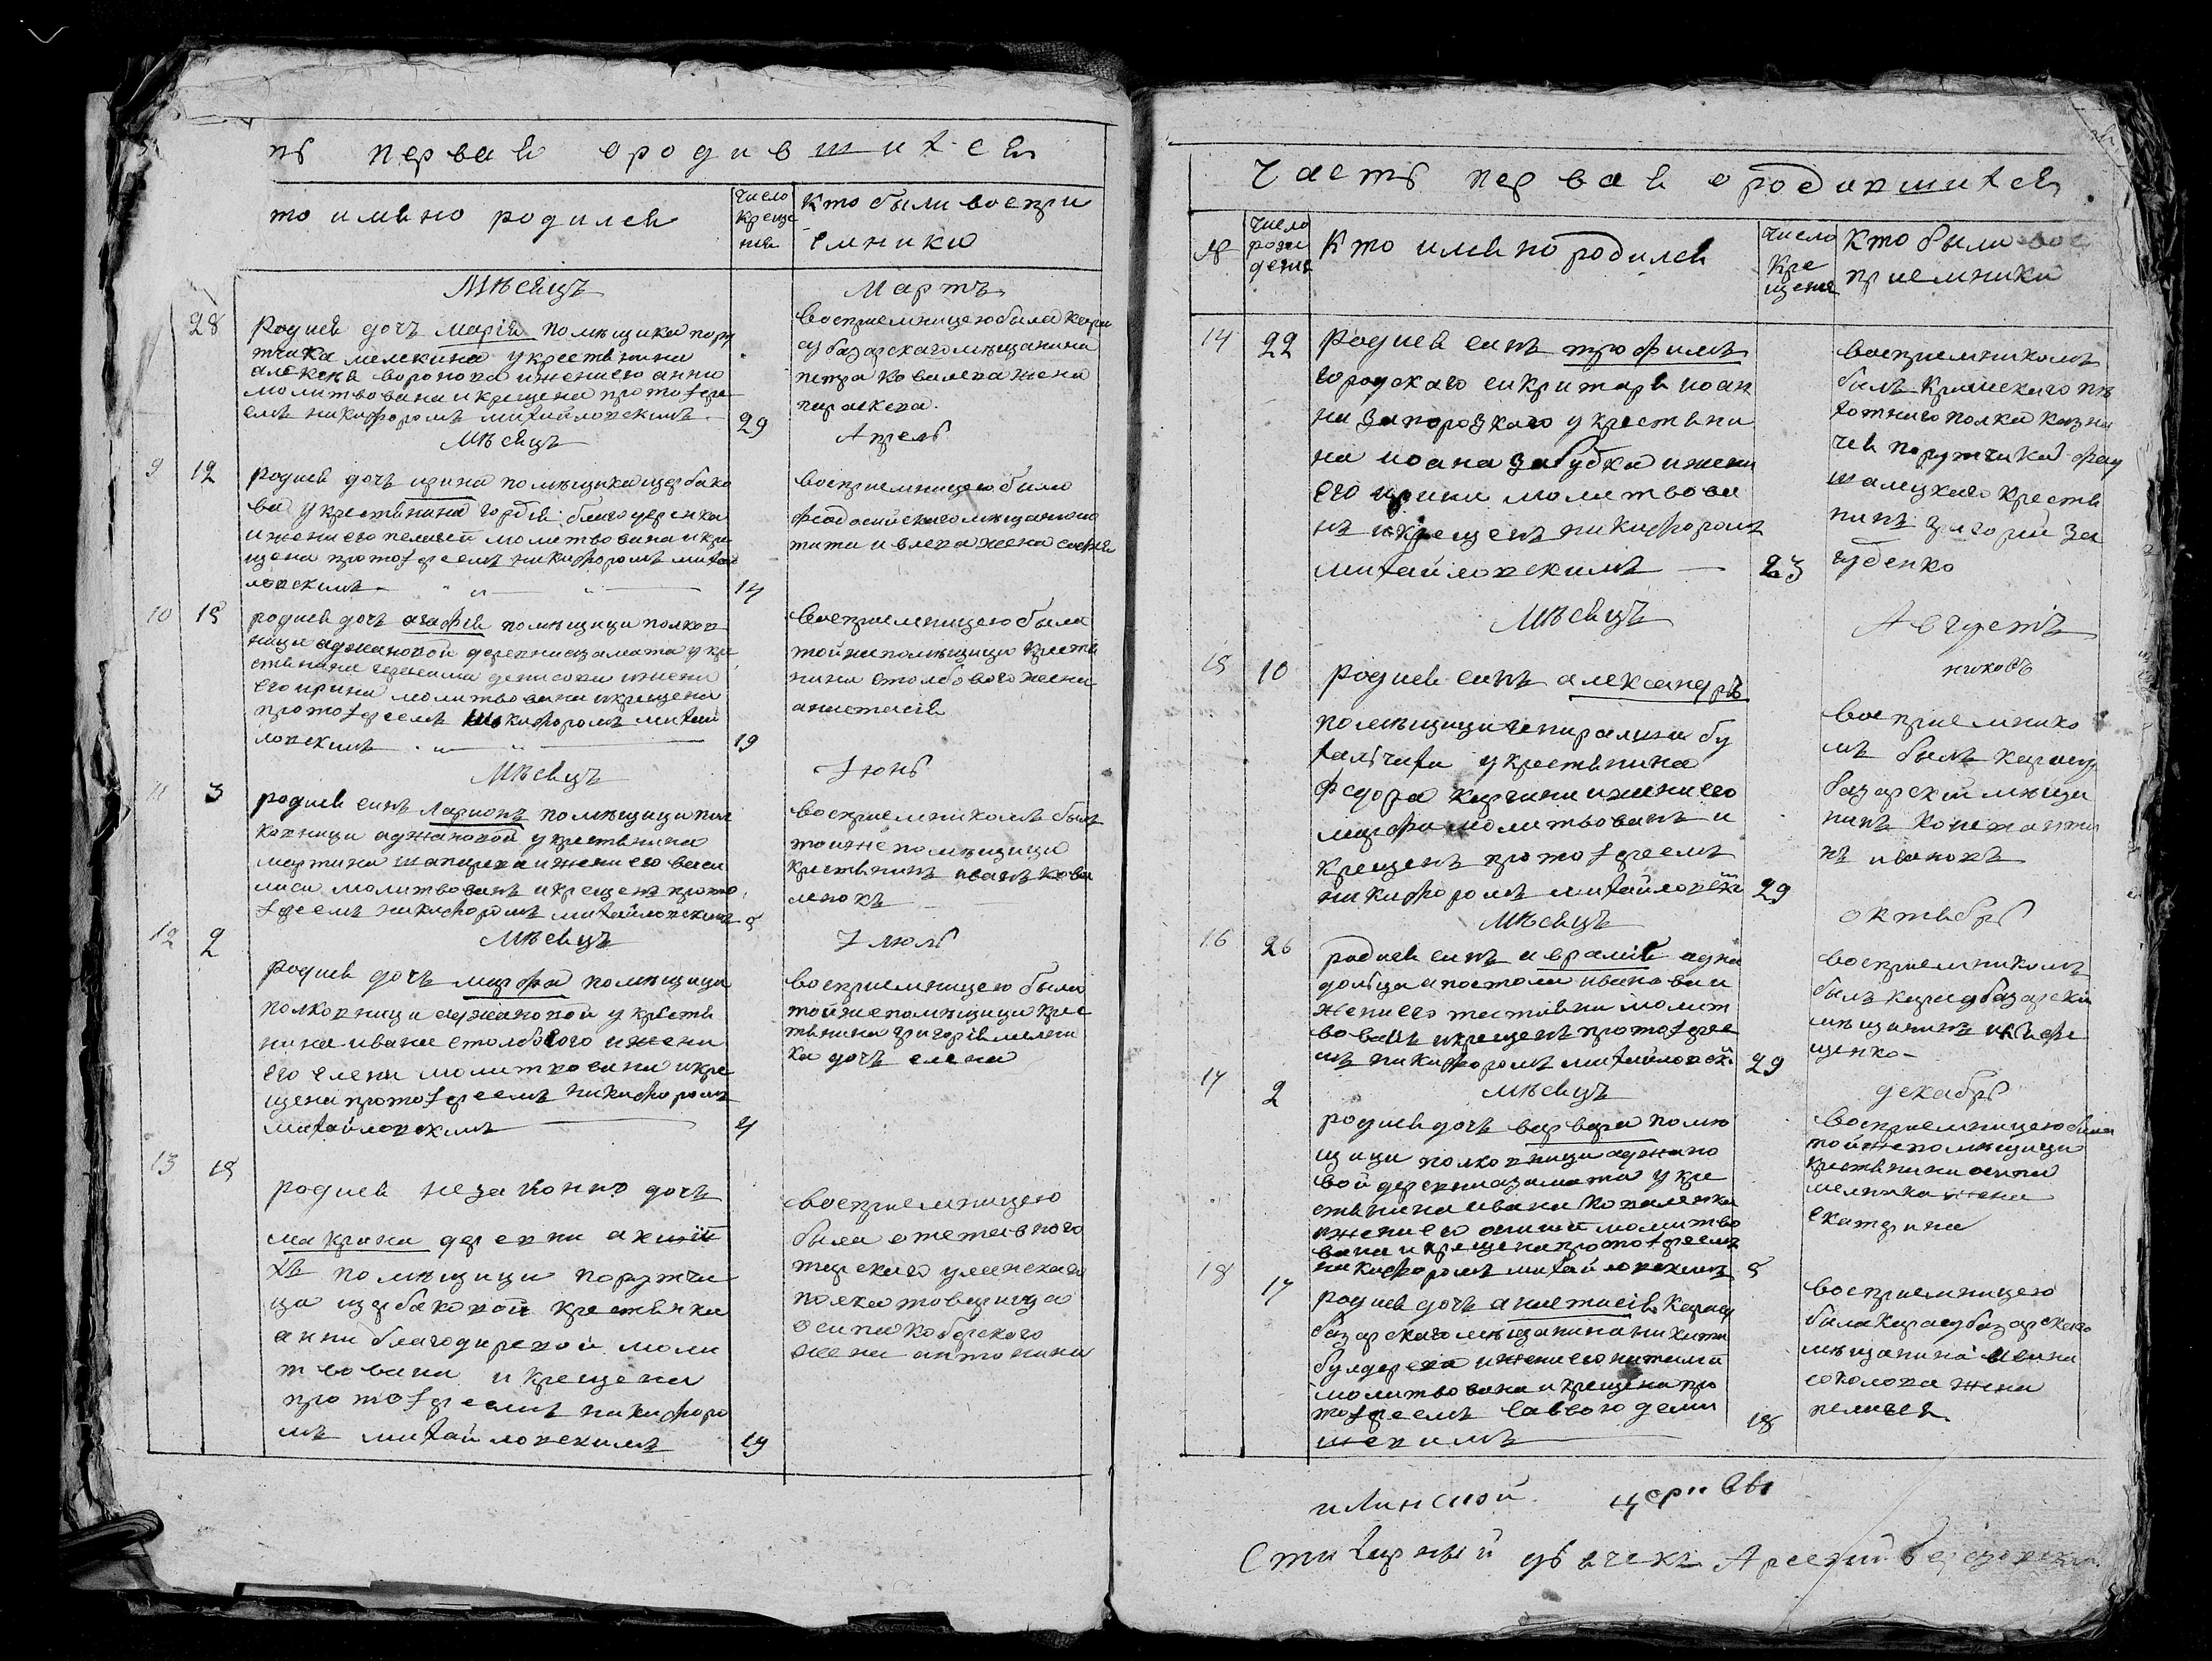 пь первая о родившихся
то именно родился
число
креще
ния
кто были воспри
емники
Мѣсяцъ
Мартъ
28
родися дочъ марія помѣщика пору
тчика мелекина у крестянина
алексея воронова и жени его анни
молитвована и крещена протоіере
емъ никифоромъ михайловскимъ
29
восприемницею била кара
субазарскаго мѣщанина
петра ковалева жена
параскева.
Мѣсяцъ
Апрель
9
12
родися дочъ ирина помѣщика щербако
ва у крестянина гордея благодаренка
и жени его пелагеи молитвована и кре
щена протоіереемъ никифоромъ михай
ловскимъ
14
восприемницею била
феодосийскаго мѣщанина
жена софия
10
15
родися дочъ агафия помѣщици полков
ници аджановой деревни азамата у кре
стянина денисова и жени
его ирини молитвована и крещена
протоіереемъ никифоромъ михай
ловскимъ
19
восприемницею била
тойже помѣщици крестя
нина столбового жена
анастасія
Мѣсяцъ
Іюнь
11
3
родися синъ ларионъ помѣщици пол
ковници аджановой у крестянина
мартина и жени его васи
лиси молитвованъ и крещенъ прото
іреемъ никифоромъ михайловскимъ
5
восприемникомъ билъ
тойже помѣщици
крестянинъ иванъ кова
ленокъ
Мѣсяцъ
Іюль
12
2
родися дочъ марфа помѣщици
полковници аджановой у крестя
нина ивана столбового и жени
его елени молитвована и кре
щена протоіереемъ никифоромъ
михайловскимъ
4
восприемницею била
тойже помѣщици крес
тянина григорія мелни
ка дочъ елена
13
15
родися незаконно дочъ
макрина деревни
хъ помѣщици поручи
ци щербаковой крестянки
анни благодаревой моли
твована и крещена
протоіереемъ никифоро
мъ михайловскимъ
19
восприемницею
била отставного
полка товарища
осипа кобзрского
жена антонина
Часть первая о родившихся
№
число
рожд
дения
Кто именно родился
число
кре
щения
кто были вос
приемники
14
22
Родися синъ трофимъ
городскаго сикритаря иоан
на запорозкаго у крестяни
на иоана загубка и жени
его ирини молитвова
нъ и крещенъ никифоромъ
михайловскимъ
23
восприемникомъ
билъ кримскаго пѣ
хотнаго полка казна
чея поручика
крестя
нинъ григорий за
губенко
Мѣсяцъ
Августъ
15
10
родися синъ александръ
помѣщици генералши бу
у крестянина
федора каргина и жени его
марфи молитвованъ и
крещенъ протоіереемъ
никифоромъ михайловски
29
восприемнико
мъ билъ карасу
базарский мѣща
нинъ константи
нъ ивановъ
Мѣсяцъ
октябрь
16
26
родися синъ аврамій одно
дольца апостола иванова и
жени его молит
вованъ и крещенъ протоіерее
мъ никифоромъ михайловск
29
восприемникомъ
билъ карасубазарский
мѣщанинъ
щенко
17
2
мѣсяцъ
декабрь
родися дочъ варвара помѣ
щици полковници аджано
вой деревни азамата у кре
стянина ивана коваленка
и жени его молитво
вана и крещена протоіереемъ
никифоромъ михайловскимъ
5
восприемницею била
тойже помѣщици
крестянина осипа
мелника жена
екатерина
18
17
родися дочъ анастасія карасу
базарскаго мѣщанина никити
и жени его
молитвована и крещена про
тоіереемъ саввою деми
шевимъ
18
восприемницею
била карасубазарскаго
мѣщанина
соколова жена
пелагея
илинской церкви
Стихарный дьячекъ Арсений